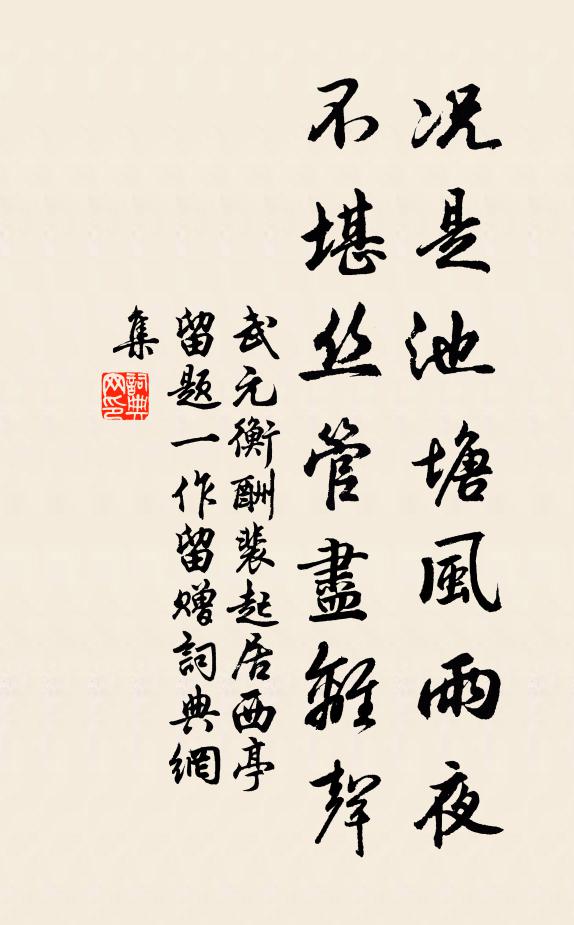 况是池塘風雨夜
不堪丝管盡離聲
武元衡酬裴起居西亭
留題一作留贈詞典網
集
詞典
网印